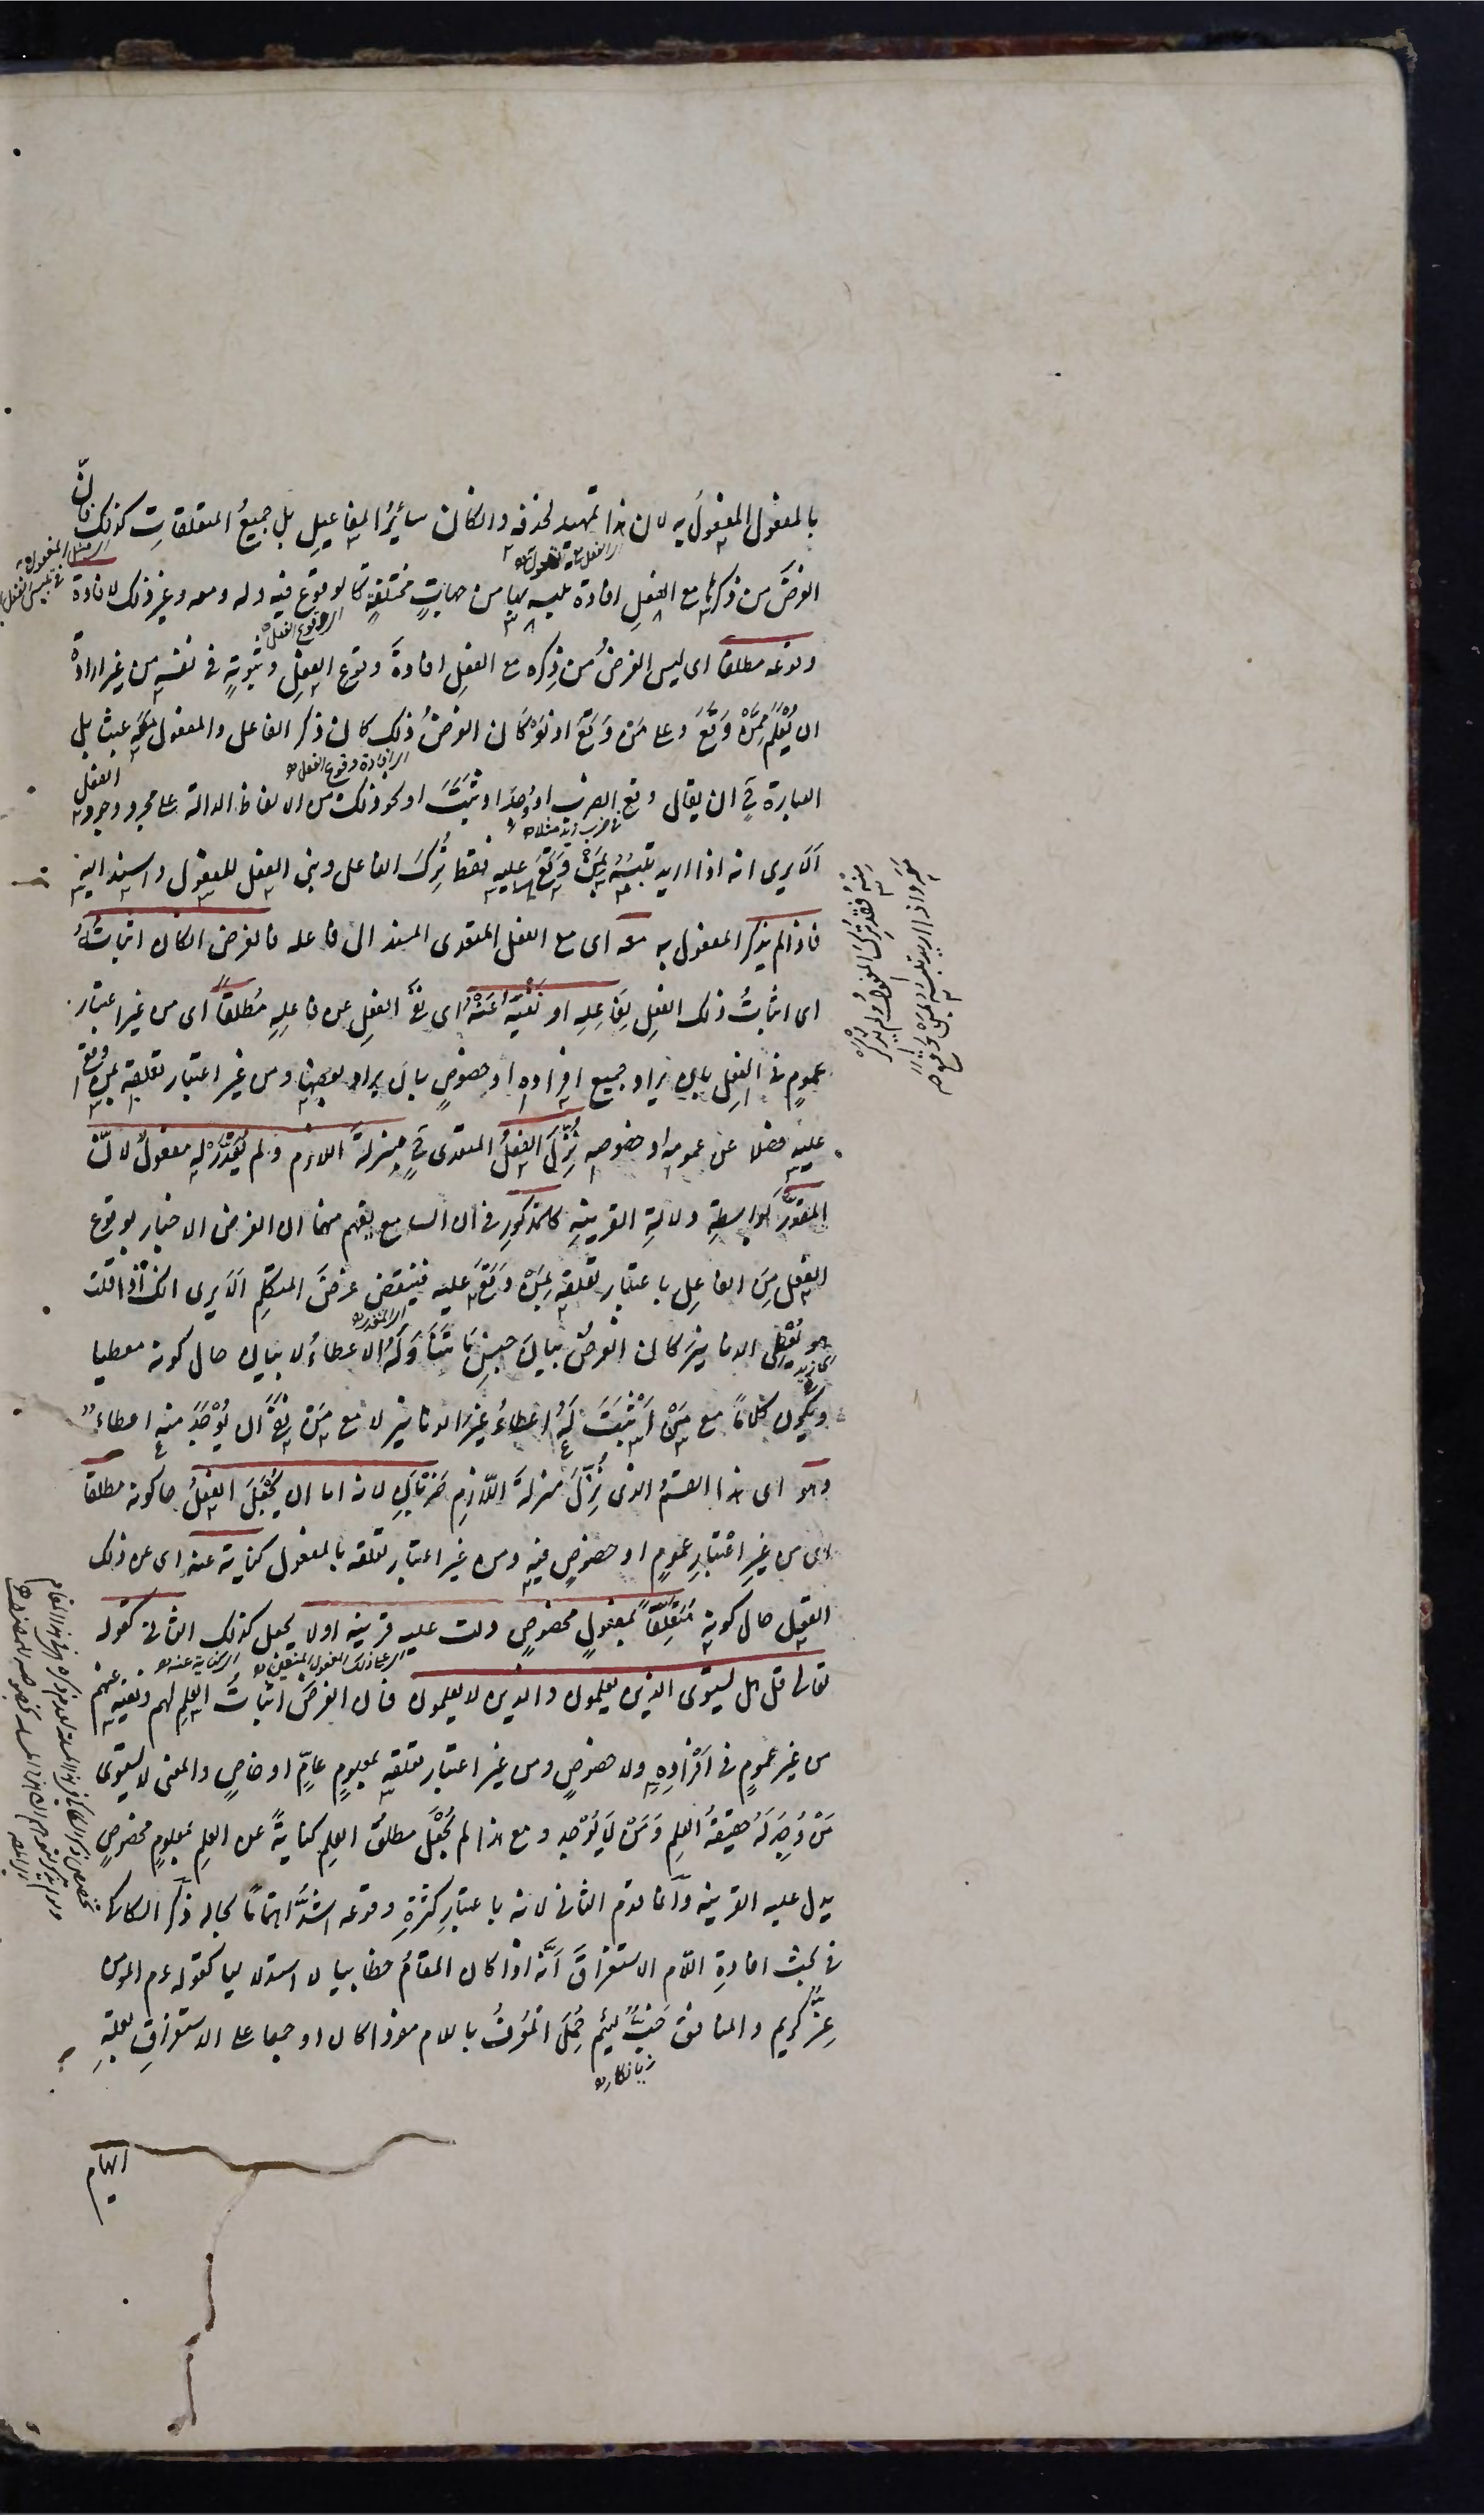 بالمفعول المفعول به لان هذا تمهيد لحذفه والكان سائر المفاعيل بل جميع المتعلقات كذلك فانّ
الغرض من ذكرها مع الفعل افادة تلبسه بها من جهات مختلفة كالوقوع فيه وله ومعه وغير ذلك لا افادة
وقوعه مطلقا اى ليس الغرض من ذكره مع الفعل افادة وقوع الفعل وثبوته فى نفسه من غير ارادة
ان يُعْلَم مِمَّنْ وَقَعَ وعلى مَنْ وَقَعَ اذ لَوْ كان الغرض ذلك كان ذكر الفاعل والمفعول معه عبثا بل
العبارة ح ان يقال وقع الضرب او وُجِدَ او ثَبَتَ او نحو ذلك من الالفاظ الدالة على مجرد وجود الفعل
اَلَا يرى انه اذا اريد تلبسه بمَنْ وَقَعَ عليه فقط تُرِكَ الفاعل وبنى الفعل للمفعول واسند اليه
فاذا لم يذكر المفعول به معه اى مع الفعل المتعدى المسند الى فاعله فالغرض انكان اثباتُهُ
اى اثباتُ ذلك الفعل لِفَاعِلِهِ او نَفْيَه عَنْهُ اى نفى الفعل عن فاعلِهِ مُطلقاً اى من غير اعتبار
عمومٍ فى الفعل بان يراد جميع افراده او خصوصٍ بان يراد بعضها ومن غير اعتبار تعلقه بمن وقع
عليه فضلا عن عمومه او خصوصه نُزِّلَ الفعلُ المتعدى ح منزلةَ اللازم ولم يُقَدَّرْ له مفعولٌ لانّ
المقدَّرَ بواسطةِ دلالةِ القرينةِ كالمذكورِ فى ان السامع يفهم منهما ان الغرض الاخبار بوقوع
الفعل مِنَ الفاعل باعتبار تعلقه بمَنْ وَقَعَ عليه فينتقض غرضُ المتكلم اَلَا يرى انك اذا قلت
هو يُعْطِى الدنانيرَ كان الغرضُ بيانَ جنسِ مَا يَتَنَاوَلُه الاعطاءُ لا بيان حال كونه معطيا
ويكون كلامًا مع مَنْ اَثْبَتَ لَهُ اعطاءُ غيرِ الدنانير لا مع مَنْ نفى ان يُوْجَدَ منه اعطاءٌ
وهو اى هذا القسمُ الذى نُزِّلَ منزلةَ اللّازمِ ضَرْبَانِ لانه اما ان يُجْعَلَ الفعلُ حالكونه مطلقا
اى من غيرِ اعتبارِ عمومٍ او خصوصٍ فيه ومن غير اعتبار تعلقه بالمفعول كناية عنه اى عن ذلك
الفعل حال كونِه مُتَعَلِّقًا بمفعولٍ مخصوصٍ دلت عليه قرينة اولا يجعل كذلك الثانى كقوله
تعالى قل هل يستوى الذين يعلمون والذين لا يعلمون فان الغرضَ اثباتُ العلمِ لهم ونفيه عنهم
من غير عمومٍ فى اَفْرَادِهِ ولا خصوصٍ ومن غير اعتبار تعلقه بمعلومٍ عامٍّ او خاصٍ والمعنى لا يستوى
مَنْ وُجِدَ لَهُ حقيقةُ العلمِ وَمَنْ لَا يُوْجد ومع هذا لم يُجْعَل مطلقُ العلم كنايةً عن العلم بمعلومٍ مخصوصٍ
يدل عليه القرينة وانما قدم الثانى لانه باعتبار كثرةِ وقوعه اشدُّ اهتمامًا بحاله ذكَر السكاكى
فى بحث افادةِ اللّام الاستغراقَ اَنَّه اذا كان المقامُ خطابيا لا استدلاليا كقوله عم المؤمن
غِرٌّ كريم والمنافق خَبٌّ لئيم حُمِلَ المُعَرَّفُ باللام مفردا كان او جمعا على الاستغراقِ لعلةِ
ايهام
اى الفعل
اى وقوع الفعل
اى افادة وقوع الفعل
اى زيد
اى المقدر
الكناية عنه